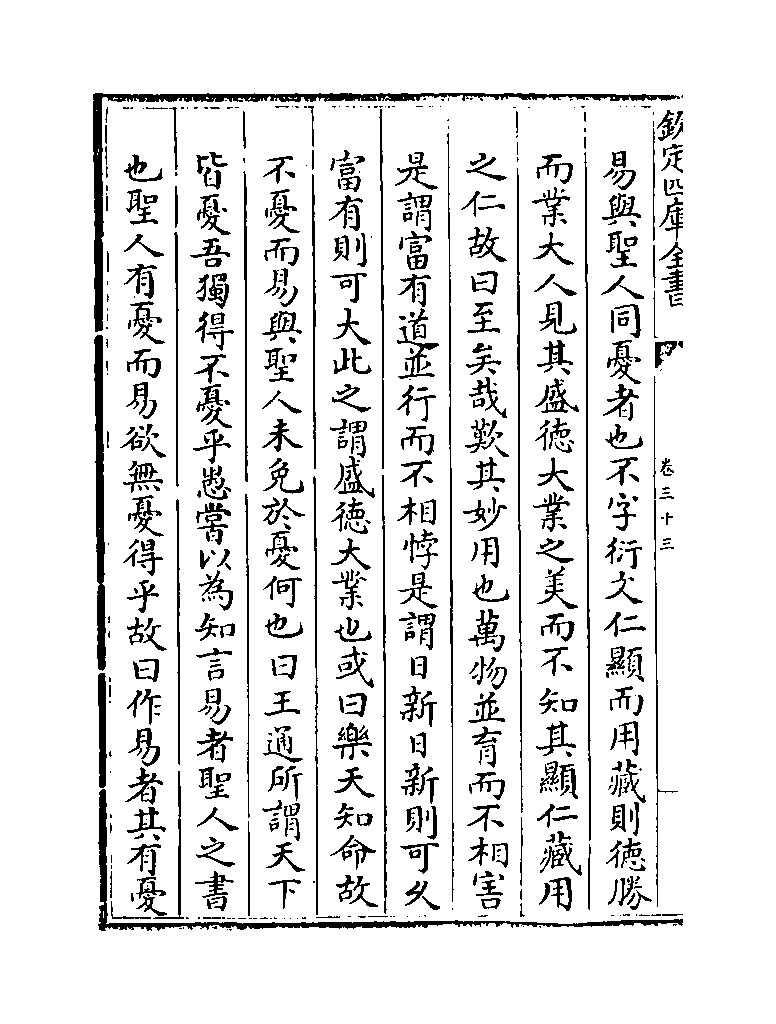 欽定四庫全書
卷三十三
易與聖人同憂者也不字衍文仁顯而用藏則徳勝
而業大人見其盛徳大業之美而不知其顯仁藏用
之仁故曰至矣哉歎其妙用也萬物並育而不相害
是謂富有道並行而不相悖是謂日新日新則可乆
富有則可大此之謂盛徳大業也或曰樂天知命故
不憂而易與聖人未免於憂何也曰王通所謂天下
皆憂吾獨得不憂乎愚嘗以為知言易者聖人之書
也聖人有憂而易欲無憂得乎故曰作易者其有憂